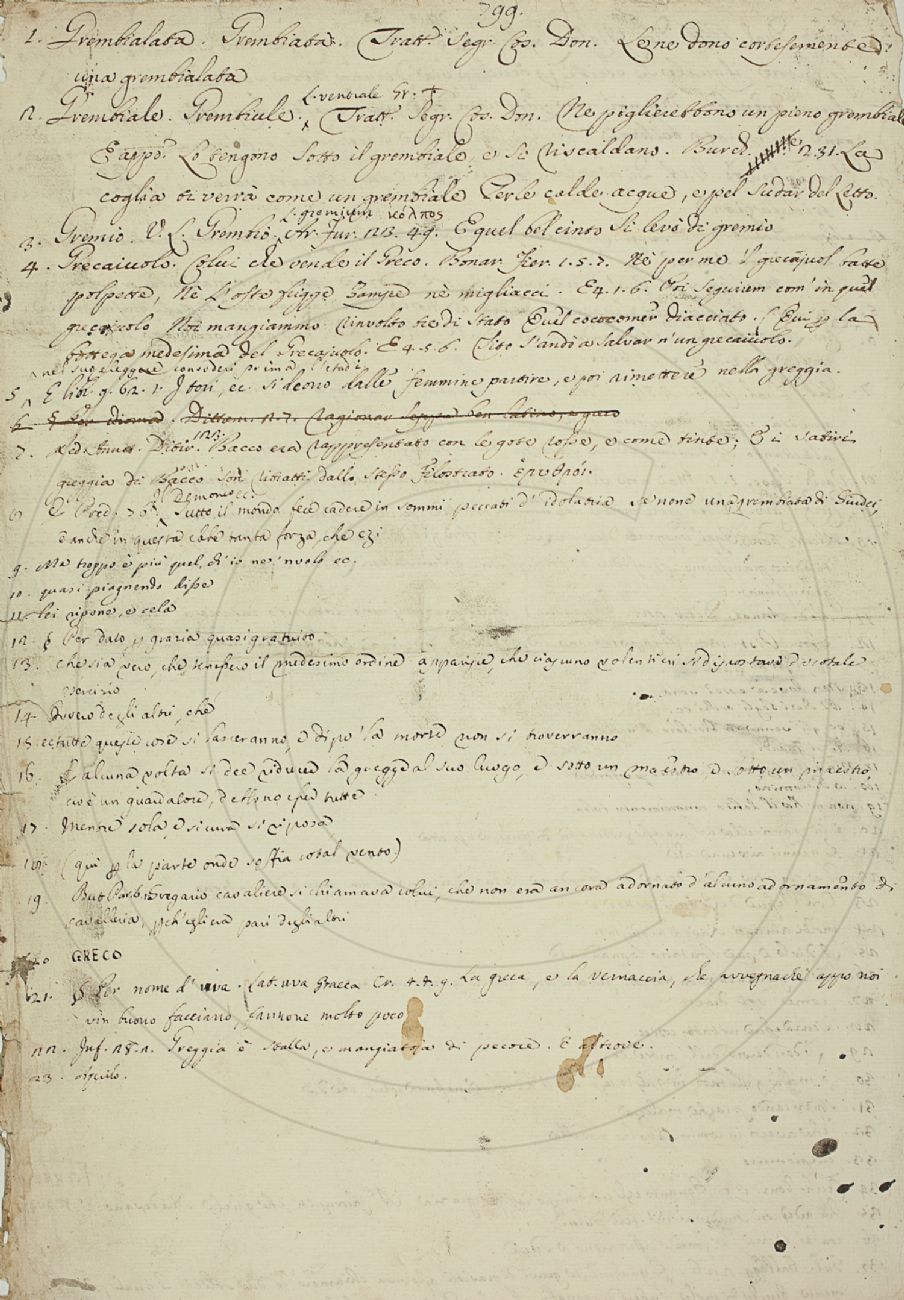 799.
1. Grembialata. Grembiata. Tratt. Segr. Cos. Don. Lene dono cortesemente
una grembialata
2. Grembiale. Grembiule. L. ventrale Gr. Tratt. Segr. Cos. Don. Ne piglierebbono un pieno grembiale
E appo. Lo tengono sotto il grembiale, e si riscaldano. Burch. 231. La
coglia ti verrà come un grembiale Per le calde acque, e pel sudar del letto.
3. Gremio. V. L. Grembo. L. gremium κόλπος Fr. Jac. 4.9. E quel bel cinto si levò di gremio
4. Grecaiuolo. Colui che vende il Greco. Bonar. Fier. 1.5.7. Nè per me 'l grecajuol batte
polpette, Nè l'oste fugge nè migliacci. E 4.1.6. Poi seguium com' in quel
grecaiuolo Noi mangiammo rinvolto di stato Quel cocomer diacciato. (Qui la
bottega medesima del Grecajuolo. E 4.5.6. Cito s'andi a salvar 'n un grecaiuolo.
nel suo leggere considera prima i
5. E lib. 9. 62. 1. I tori, ec. si deono dalle femmine partire, e poi rimettere nella greggia.
6. § Per idioma. Dittam. 2.7. Ragionar seppe ben latino, e greco
7. Red. Annot. Ditir. 123. Bacco era rappresentato con le gote rosse, e come tinte; E i satiri
greggia di Bacco son ritratti dallo stesso Filostrato. ἐρυθροί.
8. E Pred. 36. Demonio ec. Tutto il mondo fece cadere in sommi peccati d' idolatria se none una grembiata di Giudei,
e anche in questa ebbe tanta forza, che ezi
9. Ma troppo è più quel, di io ne 'nvolo ec.
10. quasi piagnendo disse
11. lei ripone, e cela
12. § Per dato p grazia quasi gratuito.
13. che sia vero, che il medesimo ordine apparisce, che ciascuno volentieri si disportava di cotale
esercizio
14. ovvero degli altri, che
15. e tutte queste cose si lasceranno, e dipo' la morte non si troverranno
16. E alcuna volta si dee riducere la greggie al suo luogo, e sotto un maestro e sotto un maestro,
cioè un guardatore, essere tutte
17. Mentre sola, e sicura si riposa
18. (qui p la parte onde soffia cotal vento)
19. But. Par. Gregario cavaliere si chiamava colui, che non era ancora adornato d'alcuno adornamento di
cavalleria, pch'egli era pari degli altri
20 GRECO
21. § Per nome d' uva. Lat. uva graeca Cr. 4.4.9. La greca, e la vernaccia, che avvegnachè appo noi
vin buono facciano, fannone molto poco
22. Inf. 28.2. Greggia è stalla, e mangiatoja di pecore. E altrove.
23.